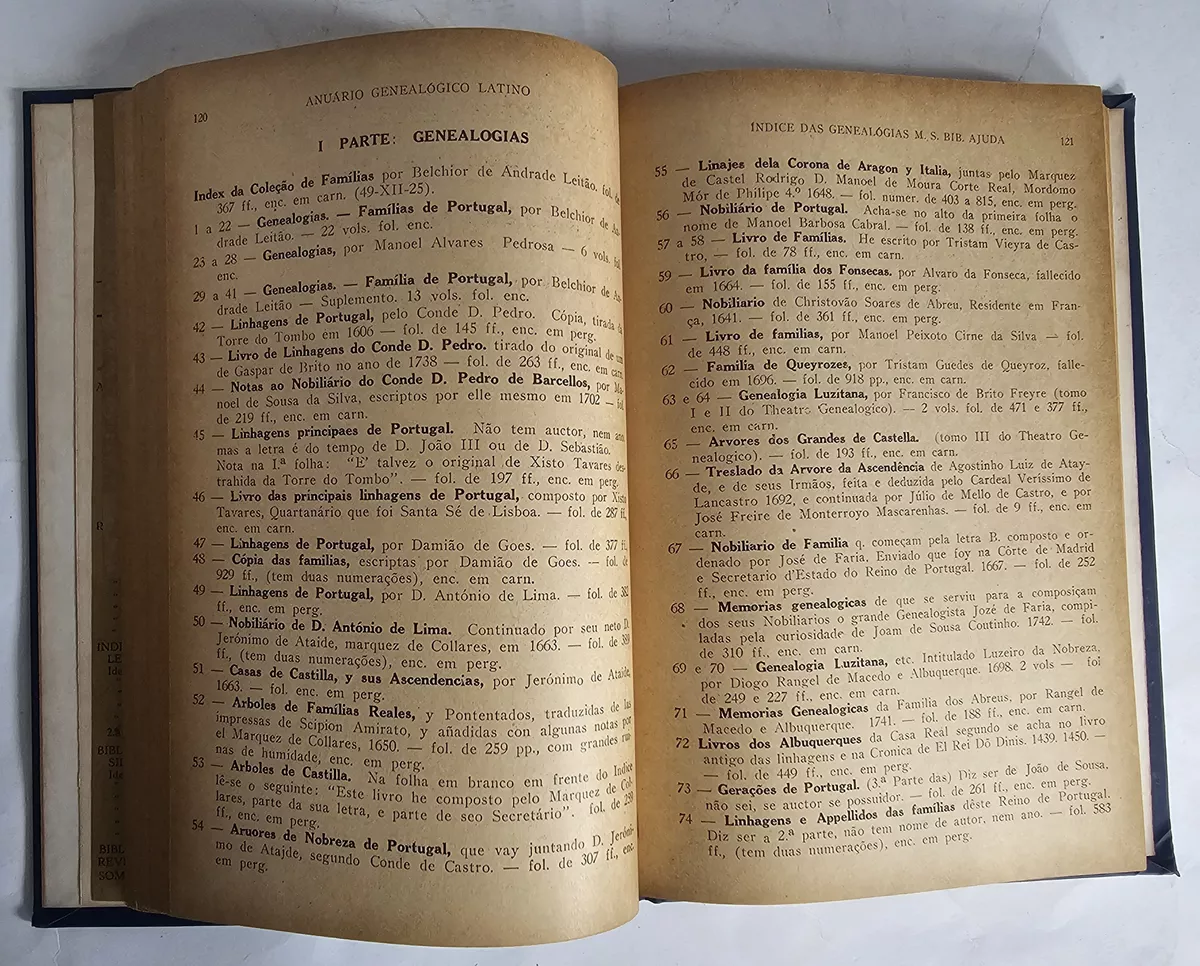 120
ANUÁRIO GENEALÓGICO LATINO
I PARTE: GENEALOGIAS
Index da Coleção de Famílias por Belchior de Andrade Leitão. fol. de
367 ff., enc. em carn. (49-XII-25).
1 a 22 — Genealogias. — Famílias de Portugal, por Belchior de An-
drade Leitão. — 22 vols. fol. enc.
23 a 28 — Genealogias, por Manoel Alvares Pedrosa — 6 vols. fol.
enc.
29 a 41 — Genealogias. — Família de Portugal, por Belchior de An-
drade Leitão — Suplemento. 13 vols. fol. enc.
42 — Linhagens de Portugal, pelo Conde D. Pedro. Cópia, tirada da
Torre do Tombo em 1606 — fol. de 145 ff., enc. em perg.
43 — Livro de Linhagens do Conde D. Pedro. tirado do original de um
de Gaspar de Brito no ano de 1738 — fol. de 263 ff., enc. em carn.
44 — Notas ao Nobiliário do Conde D. Pedro de Barcellos, por Ma-
noel de Sousa da Silva, escriptos por elle mesmo em 1702 — fol.
de 219 ff., enc. em carn.
45 — Linhagens principaes de Portugal. Não tem auctor, nem ano,
mas a letra é do tempo de D. João III ou de D. Sebastião.
Nota na I.ª folha: "E' talvez o original de Xisto Tavares des-
trahida da Torre do Tombo". — fol. de 197 ff., enc. em perg.
46 — Livro das principais linhagens de Portugal, composto por Xisto
Tavares, Quartanário que foi Santa Sé de Lisboa. — fol. de 287 ff.,
enc. em carn.
47 — Linhagens de Portugal, por Damião de Goes. — fol. de 377 ff.,
48 — Cópia das familias, escriptas por Damião de Goes. — fol. de
929 ff., (tem duas numerações), enc. em carn.
49 — Linhagens de Portugal, por D. António de Lima. — fol. de 382
ff., enc. em perg.
50 — Nobiliário de D. António de Lima. Continuado por seu neto D.
Jerónimo de Ataide, marquez de Collares, em 1663. — fol. de 389
ff., (tem duas numerações), enc. em perg.
51 — Casas de Castilla, y sus Ascendencias, por Jerónimo de Ataíde,
1663. — fol. enc. em perg.
52 — Arboles de Famílias Reales, y Pontentados, traduzidas de las
impressas de Scipion Amirato, y añadidas con algunas notas por
el Marquez de Collares, 1650. — fol. de 259 pp., com grandes rui-
nas de humidade, enc. em perg.
53 — Arboles de Castilla. Na folha em branco em frente do Indice
lê-se o seguinte: "Este livro he composto pelo Marquez de Col-
lares, parte da sua letra, e parte de seo Secretário". fol. de 290
ff., enc. em perg.
54 — Aruores de Nobreza de Portugal, que vay juntando D. Jeróni-
mo de Atajde, segundo Conde de Castro. — fol. de 307 ff., enc.
em perg.
ÍNDICE DAS GENEALÓGIAS M. S. BIB. AJUDA
121
55 — Linajes dela Corona de Aragon y Italia, juntas pelo Marquez
de Castel Rodrigo D. Manoel de Moura Corte Real, Mordomo
Mór de Philipe 4.º 1648. — fol. numer. de 403 a 815, enc. em perg.
56 — Nobiliário de Portugal. Acha-se no alto da primeira folha o
nome de Manoel Barbosa Cabral. — fol. de 138 ff., enc. em perg.
57 a 58 — Livro de Famílias. He escrito por Tristam Vieyra de Cas-
tro, — fol. de 78 ff., enc. em carn.
59 — Livro da família dos Fonsecas. por Alvaro da Fonseca, fallecido
em 1664. — fol. de 155 ff., enc. em perg.
60 — Nobiliario de Christovão Soares de Abreu, Residente em Fran-
ça, 1641. — fol. de 361 ff., enc. em perg.
61 — Livro de familias, por Manoel Peixoto Cirne da Silva — fol.
de 448 ff., enc. em carn.
62 — Familia de Queyrozes, por Tristam Guedes de Queyroz, falle-
cido em 1696. — fol. de 918 pp., enc. em carn.
63 e 64 — Genealogia Luzitana, por Francisco de Brito Freyre (tomo
I e II do Theatro Genealogico). — 2 vols. fol. de 471 e 377 ff.,
enc. em carn.
65 — Arvores dos Grandes de Castella. (tomo III do Theatro Ge-
nealogico). — fol. de 193 ff., enc. em carn.
66 — Treslado da Arvore da Ascendência de Agostinho Luiz de Atay-
de, e de seus Irmãos, feita e deduzida pelo Cardeal Verissimo de
Lancastro 1692, e continuada por Júlio de Mello de Castro, e por
José Freire de Monterroyo Mascarenhas. — fol. de 9 ff., enc. em
carn.
67 — Nobiliario de Familia q. começam pela letra B. composto e or-
denado por José de Faria, Enviado que foy na Côrte de Madrid
e Secretario d'Estado do Reino de Portugal. 1667. — fol. de 252
ff., enc. em perg.
68 — Memorias genealogicas de que se serviu para a composiçam
dos seus Nobiliarios o grande Genealogista Jozé de Faria, compi-
ladas pela curiosidade de Joam de Sousa Coutinho. 1742. — fol.
de 310 ff., enc. em carn.
69 e 70 — Genealogia Luzitana, etc. Intitulado Luzeiro da Nobreza,
por Diogo Rangel de Macedo e Albuquerque. 1698. 2 vols — fol
de 249 e 227 ff., enc. em carn.
71 — Memorias Genealogicas da Familia dos Abreus, por Rangel de
Macedo e Albuquerque. 1741. — fol. de 188 ff., enc. em carn.
72 Livros dos Albuquerques da Casa Real segundo se acha no livro
antigo das linhagens e na Cronica de El Rei Dõ Dinis. 1439. 1450. —
— fol. de 449 ff., enc. em perg.
73 — Gerações de Portugal. (3.ª Parte das) Diz ser de João de Sousa,
não sei, se auctor se possuidor. — fol. de 261 ff., enc. em perg.
74 — Linhagens e Appellidos das famílias dêste Reino de Portugal.
Diz ser a 2.ª parte, não tem nome de autor, nem ano. — fol. 583
ff., (tem duas numerações), enc. em perg.